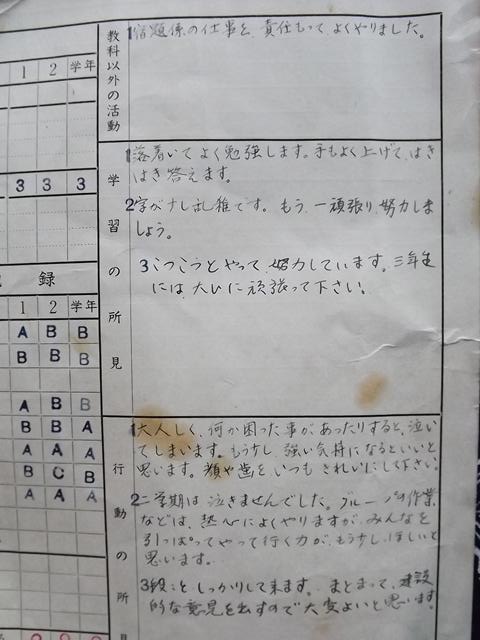 教科以外の活動
1宿題係の仕事を、責任もって、よくやりました。
1 2 学年
3 3 3
学習の所見
1落着いてよく勉強します。手もよく上げて、はき
はき答えます。
2字が少し乱雑です。もう、一頑張り、努力しま
しょう。
3こつこつとやって、努力しています。三年生
には大いに頑張って下さい。
録
1 2 学年
A B B
B B B
A B B
B B A
A A A
B C B
A A A
行動の所見
1大人しく、何か困った事が、あったりすると、泣い
てしまいます。もう少し、強い気持になるといいと
思います。顔や歯を、いつも、きれいにして下さい。
2二学期は泣きませんでした。グループの作業
などは、熱心によくやりますが、みんなを
引っぱってやって行く力が、もう少しほしいと
思います。
3段々としっかりして来ます。まとまって、建設
的な意見を出すので大変よいと思います。